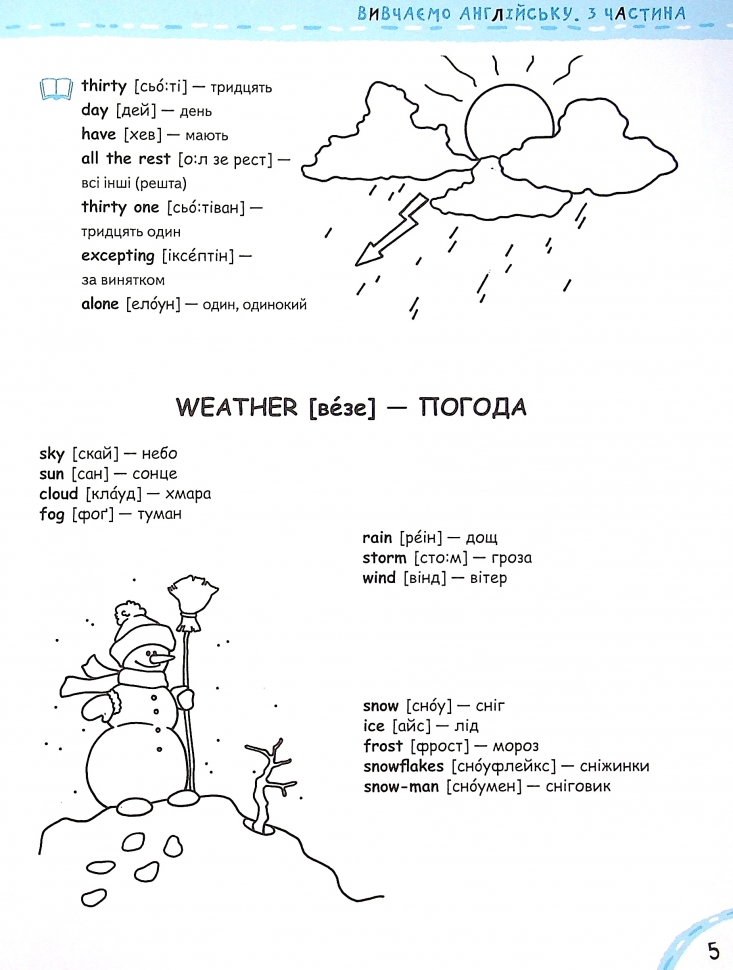 ВИВЧАЄМО АНГЛІЙСЬКУ. 3 ЧАСТИНА
thirty [сьо́:ті] — тридцять
day [дей] — день
have [хев] — мають
all the rest [о:л зе рест] —
всі інші (решта)
thirty one [сьо́:тіван] —
тридцять один
excepting [іксе́птін] —
за винятком
alone [ело́ун] — один, одинокий
WEATHER [ве́зе] — ПОГОДА
sky [скай] — небо
sun [сан] — сонце
cloud [кла́уд] — хмара
fog [фоґ] — туман
rain [ре́ін] — дощ
storm [сто:м] — гроза
wind [вінд] — вітер
snow [сно́у] — сніг
ice [айс] — лід
frost [фрост] — мороз
snowflakes [сно́уфлейкс] — сніжинки
snow-man [сно́умен] — сніговик
5